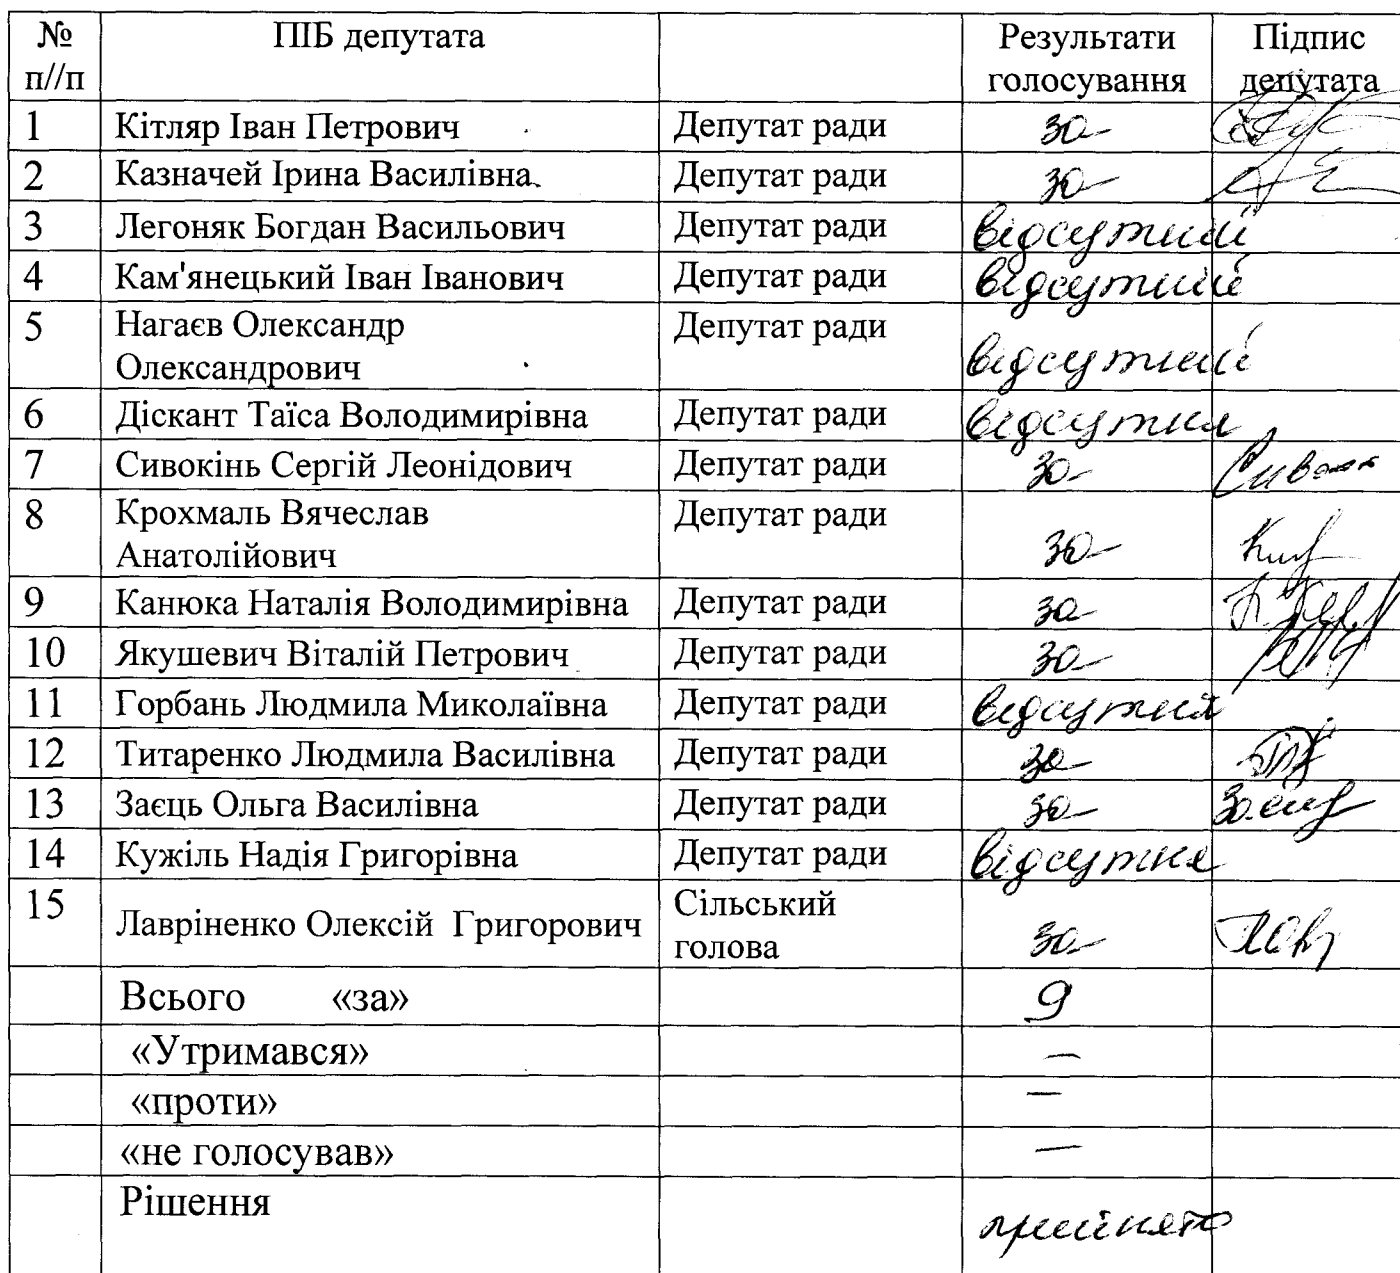 № ПІБ депутата Результати Підпис
п//п голосування депутата
1 Кітляр Іван Петрович Депутат ради за
2 Казначей Ірина Василівна. Депутат ради за
3 Легоняк Богдан Васильович Депутат ради відсутній
4 Кам'янецький Іван Іванович Депутат ради відсутній
5 Нагаєв Олександр Депутат ради
Олександрович відсутній
6 Діскант Таїса Володимирівна Депутат ради відсутня
7 Сивокінь Сергій Леонідович Депутат ради за
8 Крохмаль Вячеслав Депутат ради
Анатолійович за
9 Канюка Наталія Володимирівна Депутат ради за
10 Якушевич Віталій Петрович Депутат ради за
11 Горбань Людмила Миколаївна Депутат ради відсутня
12 Титаренко Людмила Василівна Депутат ради за
13 Заєць Ольга Василівна Депутат ради за
14 Кужіль Надія Григорівна Депутат ради відсутня
15 Лавріненко Олексій Григорович Сільський
голова за
Всього «за» 9
«Утримався» –
«проти» –
«не голосував» –
Рішення прийнято